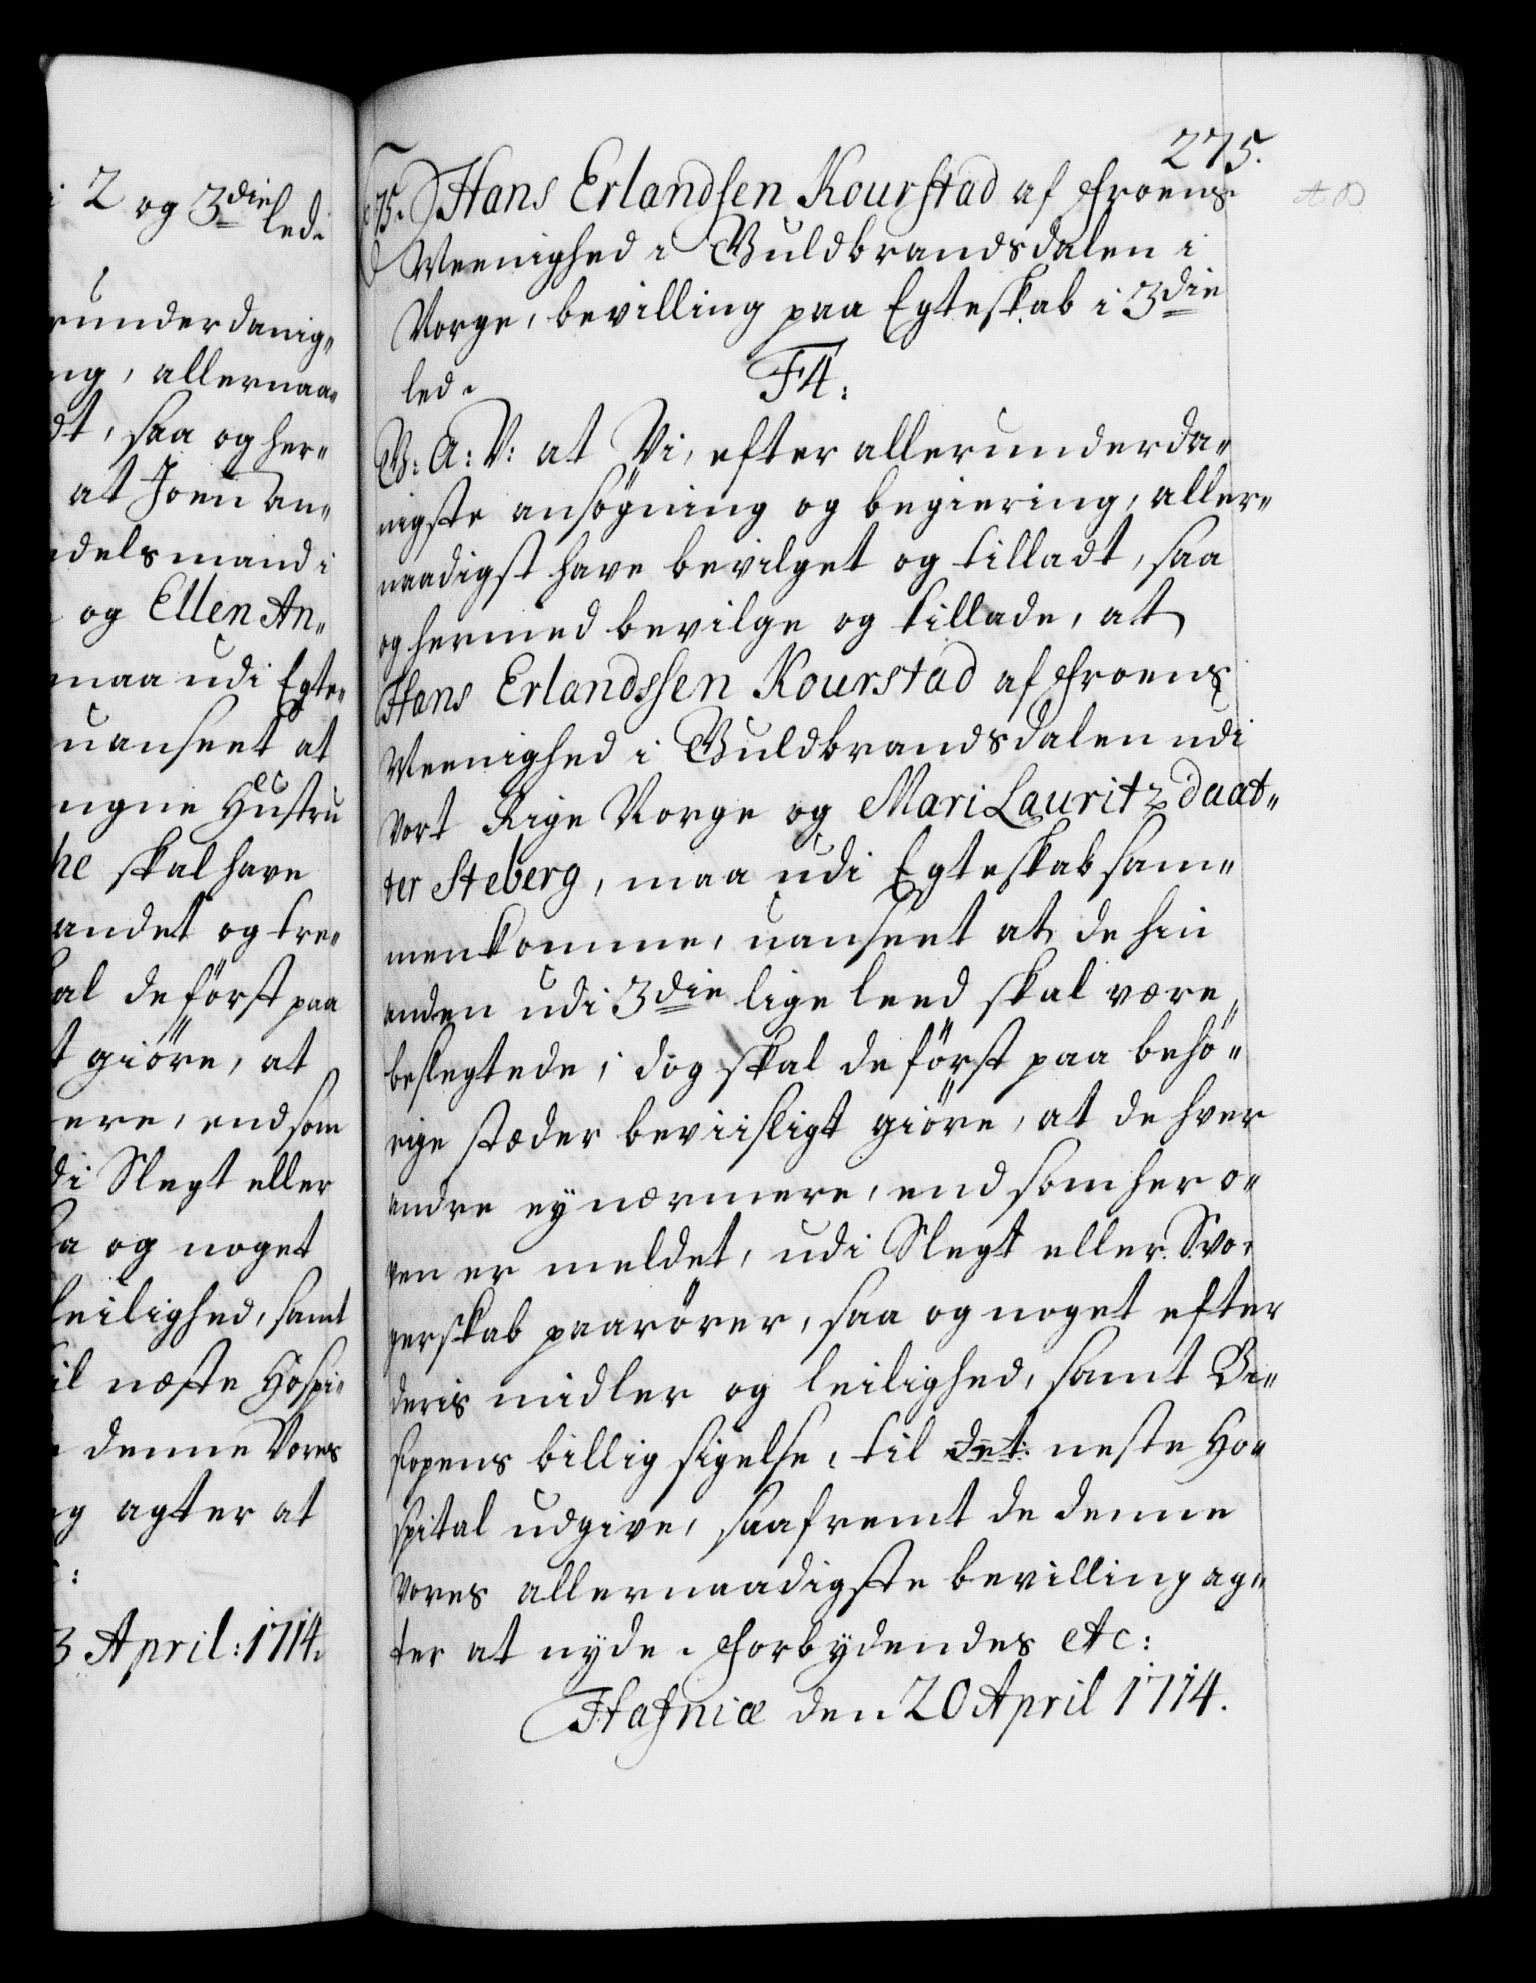 i 2 og 3die led.
runderdanig-
ng, allernaa-
dt, saa og her-
at Joen An-
ndelsmand i
og Ellen An-
maa udi Egte-
uanseet at
ngne Hustru
he skal have
andet og tre-
al de först paa
t giöre, at
ere, end som
di Slegt eller
a og noget
leilighed, samt
il næste Hospi-
denne Vores
g agter at
3 April: 1714.
275.
75. Hans Erlandsen Kourstad af Froens
Meenighed i Guldbrandsdalen i
Norge, bevilling paa Egteskab i 3die
led. F4:
G: A: V: at Vi, efter allerunderda-
nigste ansögning og begiering, aller-
naadigst have bevilget og tilladt, saa
og hermed bevilge og tillade, at
Hans Erlandssen Kourstad af Froens
Meenighed i Guldbrandsdalen udi
Vort Rige Norge og Mari Lauritzdaat-
ter Steberg, maa udi Egteskab sam-
menkomme, uanseet at de hin
anden udi 3die lige leed skal være
beslegtede; dog skal de först paa behö-
rige stæder beviisligt giöre, at de hver
andre ey nærmere, end som her o-
ven er meldet, udi Slegt eller Svo-
gerskab paarörer, saa og noget efter
deris midler og leilighed, samt Bi-
skopens billig sigelse, til det neste Ho-
spital udgive, saafremt de denne
Vores allernaadigste bevilling ag-
ter at nyde. Forbydendes etc:
Hafniæ den 20 April 1714.